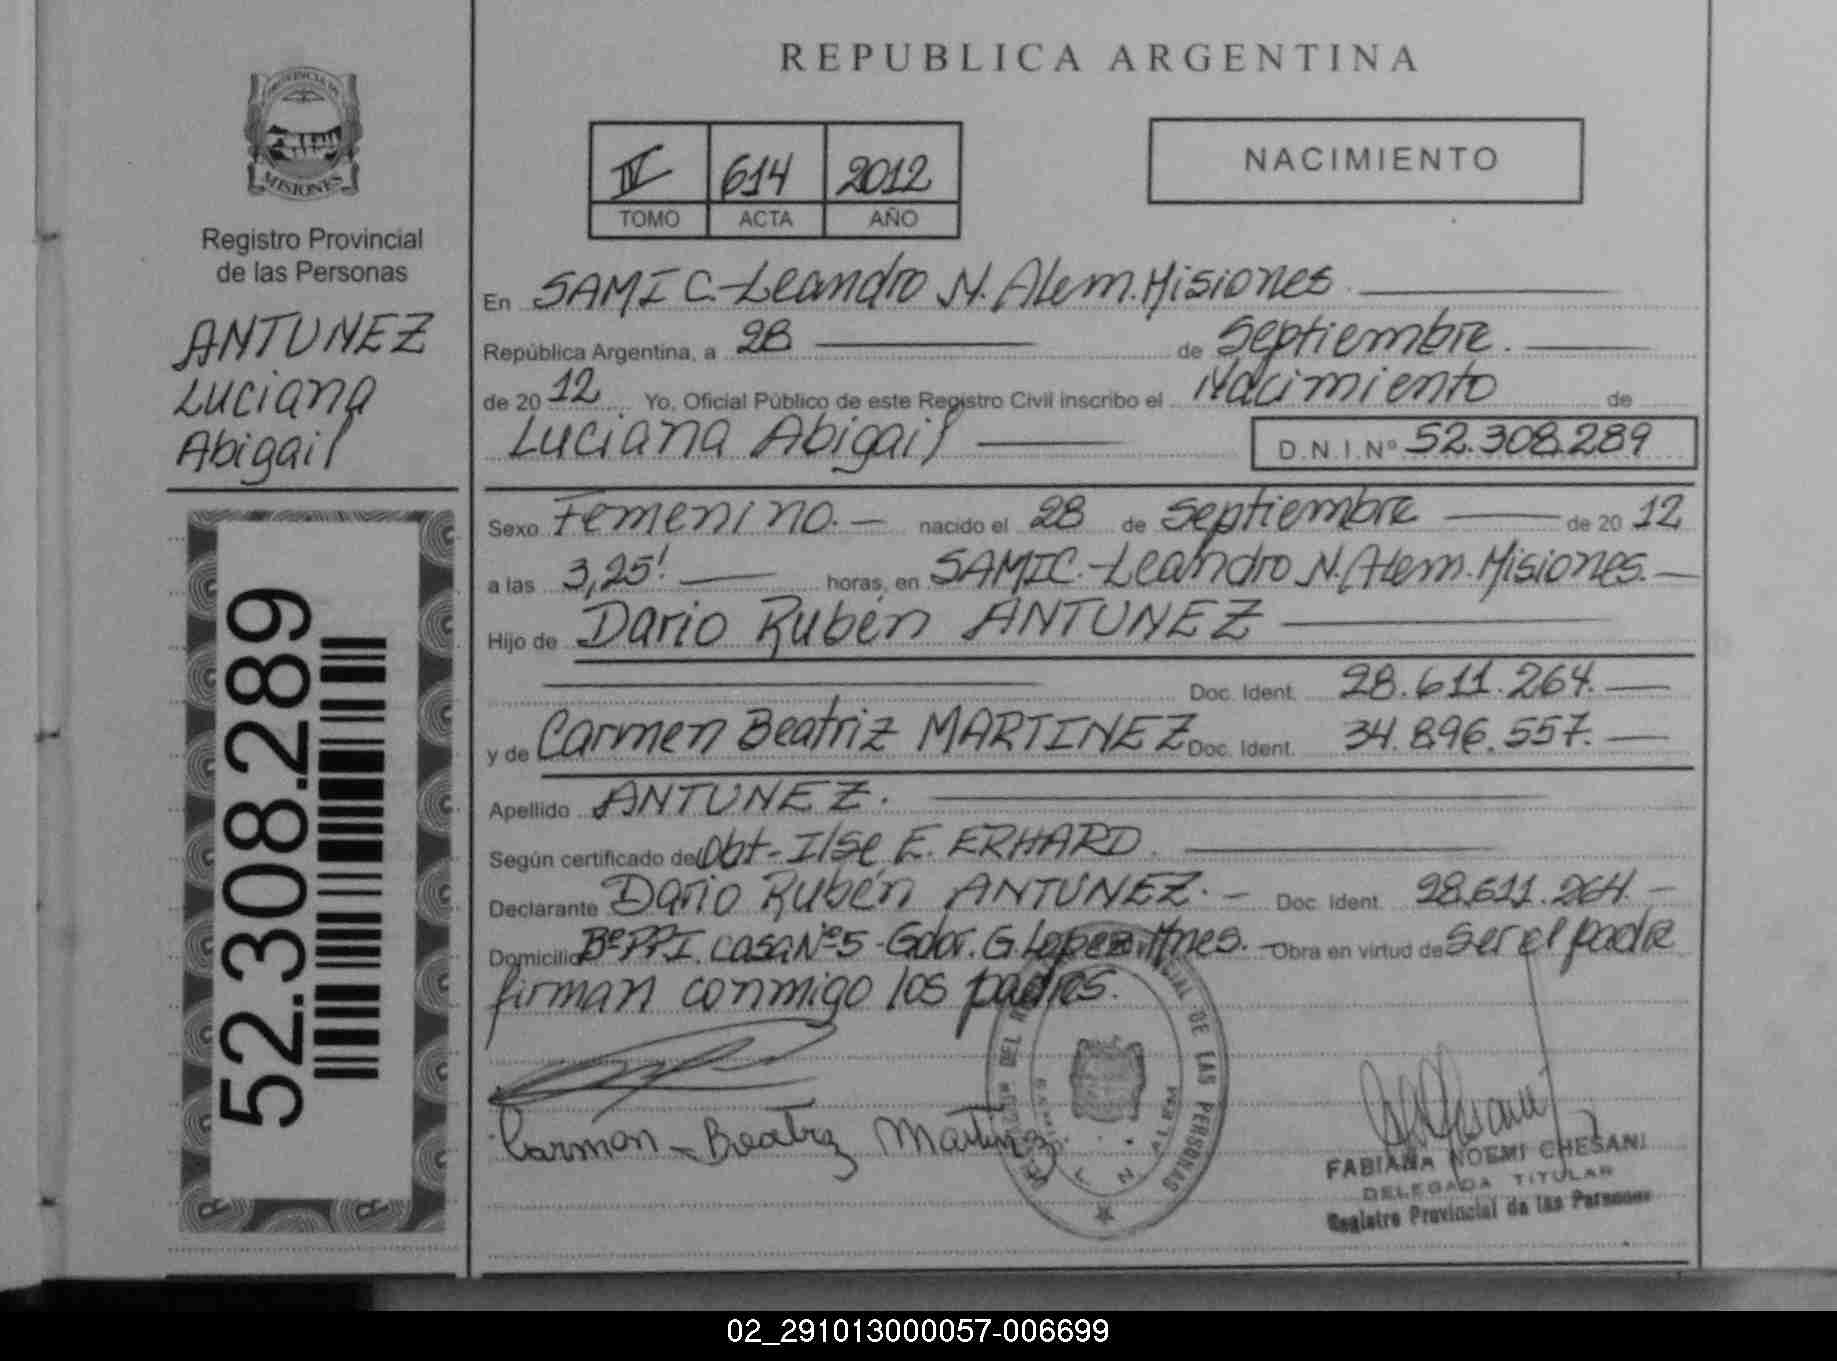 REPUBLICA ARGENTINA
PROVINCIA DE
MISIONES
Registro Provincial
de las Personas
ANTUNEZ
Luciana
Abigail
52.308.289
IV 614 2012
TOMO ACTA AÑO
NACIMIENTO
En SAMIC-Leandro N. Alem. Misiones.
República Argentina, a 28 de Septiembre.
de 2012. Yo, Oficial Público de este Registro Civil inscribo el Nacimiento de
Luciana Abigail D.N.I.Nº 52.308.289
Sexo Femenino.- nacido el 28 de Septiembre de 2012
a las 3,25' horas, en SAMIC.-Leandro N. Alem. Misiones.-
Hijo de Dario Rubén ANTUNEZ
Doc. Ident. 28.611.264.
y de Carmen Beatriz MARTINEZ Doc. Ident. 34.896.557.
Apellido ANTUNEZ.
Según certificado de Obt- Ilse E. ERHARD.
Declarante Dario Rubén ANTUNEZ.- Doc. Ident. 28.611.264.-
Domicilio Bº PPI. Casa Nº5 - Gdor. G. Lopez. Mnes.- Obra en virtud de Ser el padre
firman conmigo los padres.
Carmen - Beatriz Martinez
DE LAS PERSONAS
L. N. ALEM
FABIANA NOEMI CHESANI
DELEGADA TITULAR
Registro Provincial de las Personas
02_291013000057-006699